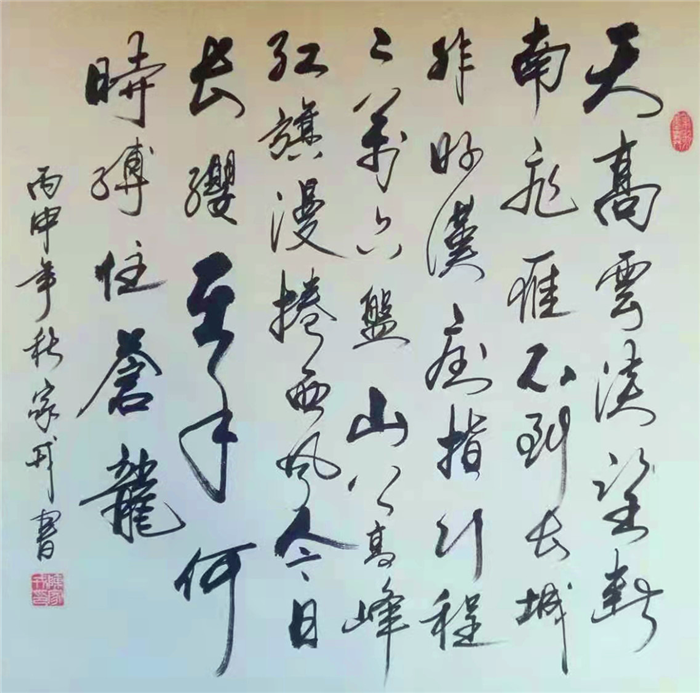 天高雲淡望斷
南飛雁不到长城
非好漢屈指行程
二萬六盤山上高峰
红旗漫捲西风今日
长纓在手何
時縛住蒼龍
丙申年秋家書